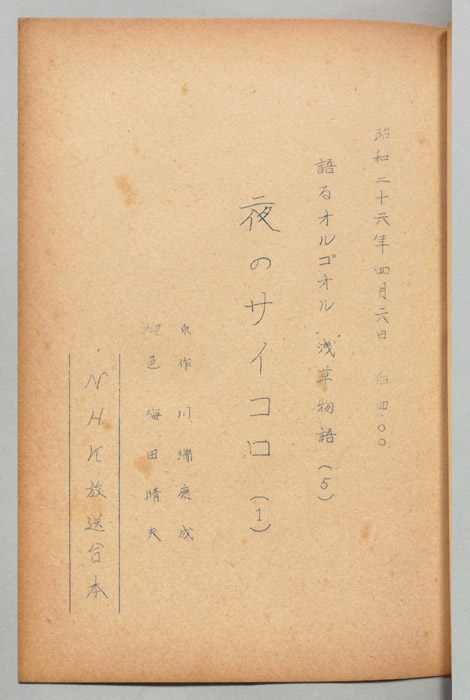 昭和二十六年四月六日 后四.〇〇
語るオルゴオル 浅草物語(5)
夜のサイコロ(1)
原作 川端康成
脚色 梅田晴夫
NHK放送台本